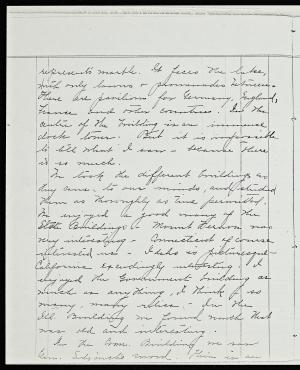 represents marble. It faces the lake,
with only lawns & promenades between.
There are pavilions for Germany, England,
France and other countries. In the
centre of the building is an immense
clock tower. But it is impossible
to tell what I saw - because there
is so much.
We took the different buildings as
they came to our minds, and studied
them as thoroughly as time permitted.
We enjoyed a good many of the
State Buildings - Mount Vernon was
very interesting - Connecticut of course
interested us - Idaho is picturesque -
California exceedingly interesting. I
enjoyed the Government building as
much as anything, I think, & so
many, many relics - In the
Ill. Building we found much that
was old and interesting.
In the Conn. Building we saw
mood. There is an